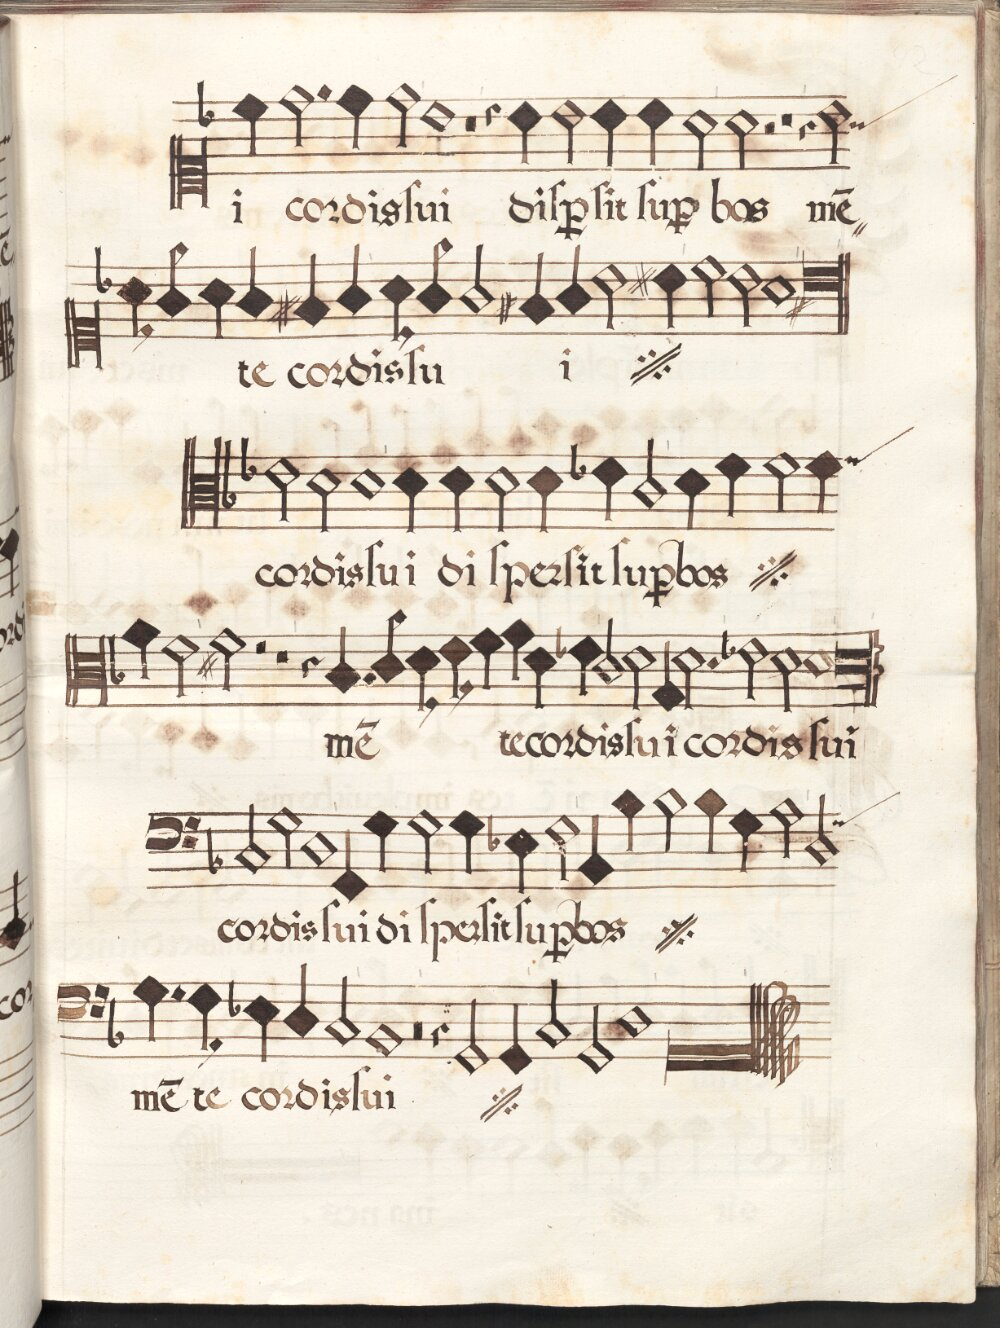 i cordis sui disp̱sit sup̱ bos mē
te cordis su i
cordis su i di spersit sup̱bos
mē te cordis su i cordis sui
cordis sui di spersit sup̱bos
mē te cordis sui